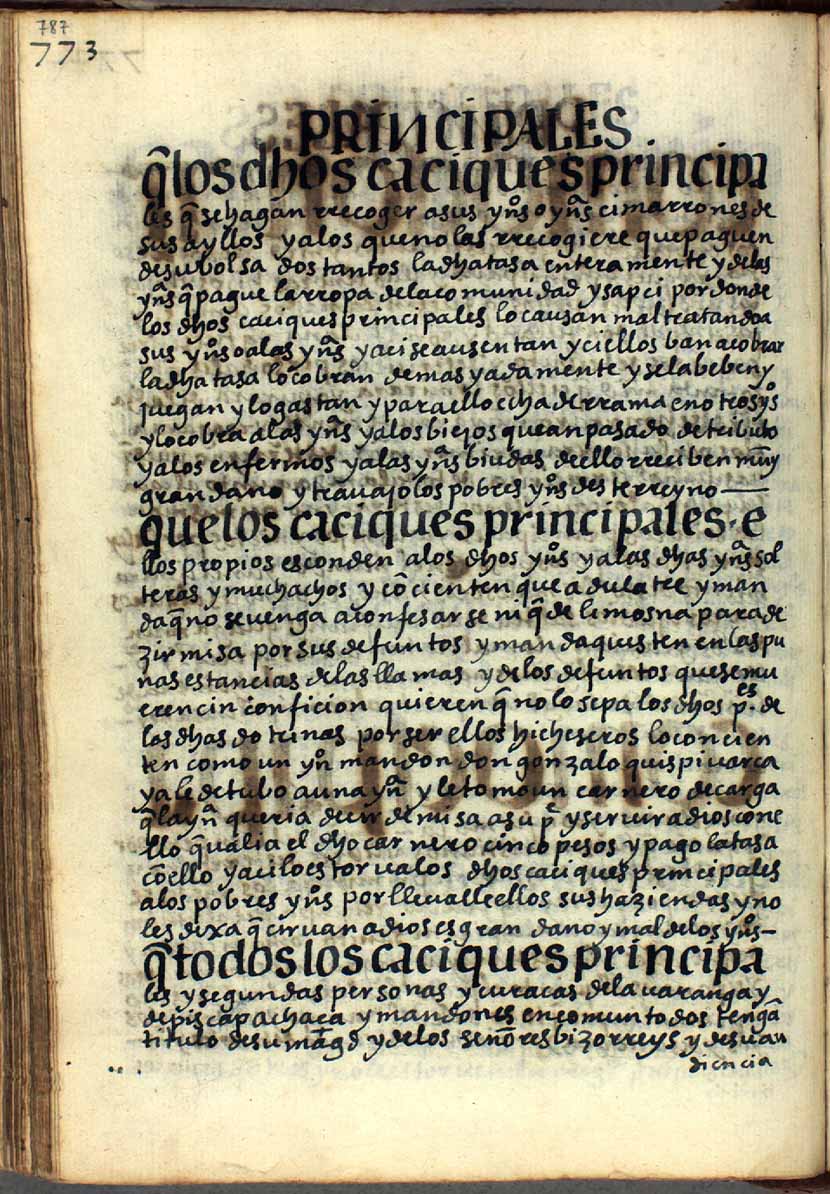 787
773
PRINCIPALES
q̃ los dhos caciques principa
les q̃ se hagan rrecoger a sus yn̊s o yñs cimarrones de
sus ayllos y a los que no las rrecogiere que paguen
de su bolsa dos tantos la dha tasa enteramente y de las
yñs q̃ pague la rropa de la comunidad y sapci por donde
los dhos caciques principales lo causan maltratando a
sus yn̊s o a las yñs y aci se ausentan y ci ellos ban a cobrar
la dha tasa lo cobran demasyadamente y se la beben y
juegan y lo gastan y para ello echa derrama en otros yn̊s
y lo cobra a las yñs y a los biejos que an pasado de tributo
y a los enfermos y a las yñs biudas de ello rreciben muy
gran dano y travajo los pobres yn̊s deste rreyno —
que los caciques principales · e
llos propios esconden a los dhos yn̊s y a las dhas yñs sol
teras y muchachos y cõcienten que adultre y man
da q̃ no se uenga a confesarse ni q̃ de limosna para de
zir misa por sus defuntos y manda questen en las pu
nas estancias de las llamas y de los defuntos que se mu
eren cin conficion quieren q̃ no lo sepa los dhos p.es de
las dhas dotrinas por ser ellos hicheseros lo concien
ten como un yn̊ mandon don gonzalo quispi uarca
ya le detubo a una yñ y le tomo un carnero de carga
q̃ la yñ queria decir de misa a su p̃ y serveir a dios con e
llo q̃ ualia el dho carnero cinco pesos y pago la tasa
cõ ello y aci lo estorua los dhos caciques principales
a los pobres yn̊s por lleualle ellos sus haziendas y no
les dexa q̃ ciruan a dios es gran dano y mal de los yn̊s —
q̃ todos los caciques principa
les y segundas personas y curacas de la uaranga y
de piscapachaca y mandones en comun todos tengã
titulo de su mag̃d y de los señores bizorreys y de su au
diencia